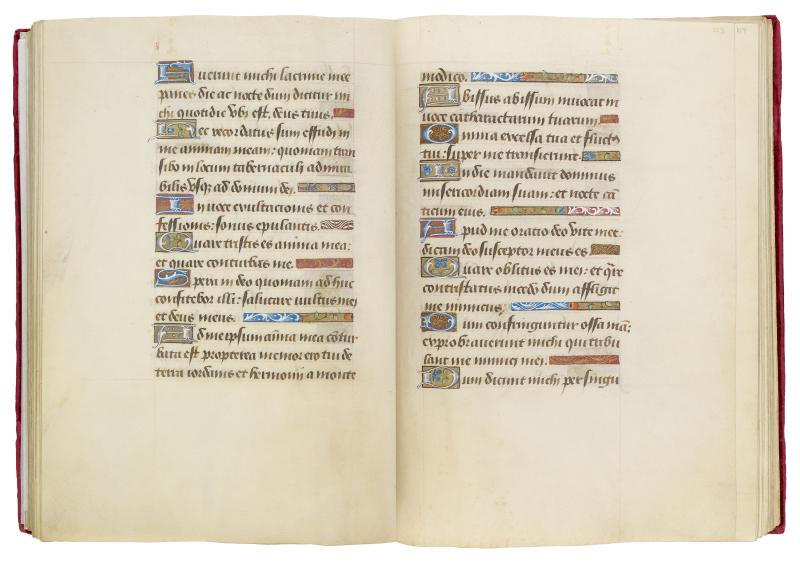 Fuerunt michi lacrime mee
panes die ac nocte dum dicitur mi
chi quotidie vbi est deus tuus.
Hec recordatus sum effudi in
me animam meam: quoniam tran
sibo in locum tabernaculi admira
bilis vsq; ad domum dei.
In uoce exultacionis et con
fessionis: sonus epulantis.
Quare tristis es anima mea:
et quare conturbas me.
Spera in deo quoniam adhuc
confitebor illi: salutare uultus mei
et deus meus.
Ad me ipsum aīa mea cōtur
bata est propterea memor ero tui de
terra iordanis et hermonii a monte
modico.
Abissus abissum inuocat in
uoce catharactarum tuarum.
Omnia excelsa tua et fluctꝰ
tui: super me transierunt.
In die mandauit dominus
misericordiam suam: et nocte cā
ticum eius.
Apud me oratio deo vite mee:
dicam deo susceptor meus es
Quare oblitus es mei: et qre
contristatus incedo dum affligit
me inimicus.
Dum confringuntur ossa mea:
exprobrauerunt michi qui tribu
lant me inimici mei.
Dum dicunt michi per singu